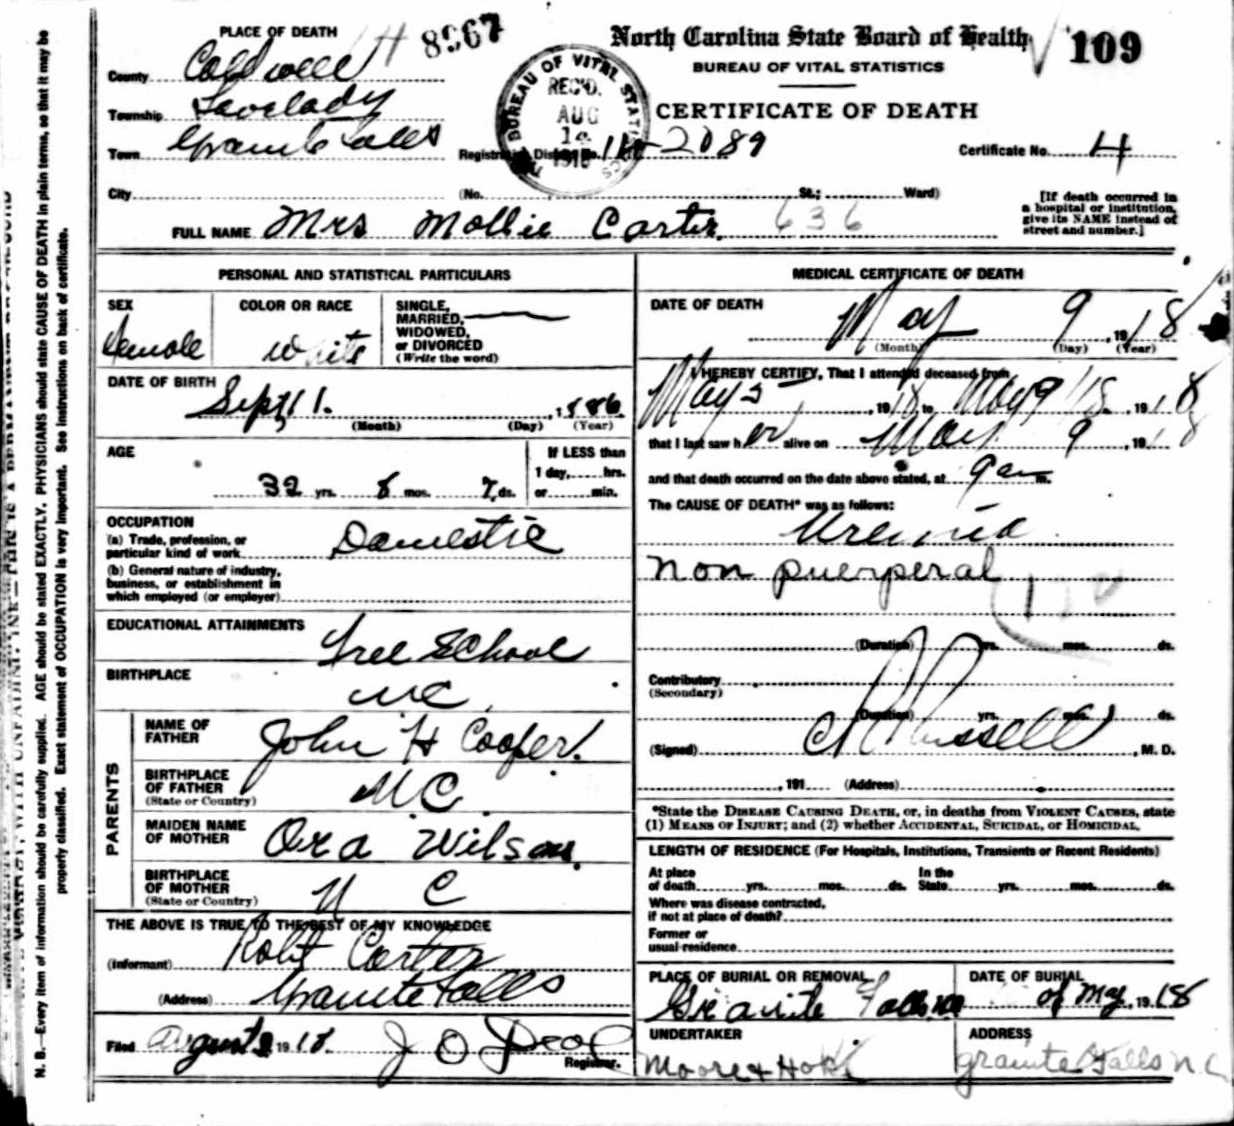 PLACE OF DEATH
8967
North Carolina State Board of Health
109
BUREAU OF VITAL STATISTICS
CERTIFICATE OF DEATH
County Caldwell
Township Lovelady
Town Granite Falls
BUREAU OF VITAL STATISTICS
REC'D.
AUG
1918
Registration District No. 2089
Certificate No. 4
City (No. St.; Ward)
[If death occurred in
a hospital or institution,
give its NAME instead of
street and number.]
FULL NAME Mrs Mollie Carter 636
PERSONAL AND STATISTICAL PARTICULARS
SEX
Female
COLOR OR RACE
white
SINGLE,
MARRIED,
WIDOWED,
or DIVORCED
(Write the word)
DATE OF BIRTH
Sept 1. , 1886
(Month) (Day) (Year)
AGE
32 yrs. 8 mos. 7 ds.
If LESS than
1 day, hrs.
or min.
OCCUPATION
(a) Trade, profession, or
particular kind of work Domestic
(b) General nature of industry,
business, or establishment in
which employed (or employer)
EDUCATIONAL ATTAINMENTS
Free School
BIRTHPLACE
NC
PARENTS
NAME OF
FATHER John H Cooper
BIRTHPLACE
OF FATHER
(State or Country) NC
MAIDEN NAME
OF MOTHER Ora Wilson
BIRTHPLACE
OF MOTHER
(State or Country) N C
THE ABOVE IS TRUE TO THE BEST OF MY KNOWLEDGE
(Informant) Robt Carter
(Address) Granite Falls
Filed August 1918 J O
Registrar.
MEDICAL CERTIFICATE OF DEATH
DATE OF DEATH
May 9 , 1918
(Month) (Day) (Year)
I HEREBY CERTIFY, That I attended deceased from
May 5 , 1918 to May 9 18 , 1918
that I last saw her alive on May 9 , 1918
and that death occurred on the date above stated, at 9 am.
The CAUSE OF DEATH* was as follows:
Uremia
non puerperal
(Duration) yrs. mos. ds.
Contributory
(Secondary)
(Duration) yrs. mos. ds.
(Signed) Russell , M. D.
, 191 (Address)
*State the DISEASE CAUSING DEATH, or, in deaths from VIOLENT CAUSES, state
(1) MEANS OF INJURY; and (2) whether ACCIDENTAL, SUICIDAL, or HOMICIDAL.
LENGTH OF RESIDENCE (For Hospitals, Institutions, Transients or Recent Residents)
At place
of death yrs. mos. ds.
In the
State yrs. mos. ds.
Where was disease contracted,
if not at place of death?
Former or
usual residence
PLACE OF BURIAL OR REMOVAL
Granite Falls NC
DATE OF BURIAL
of May 1918
UNDERTAKER
Moore &
ADDRESS
Granite Falls N C
N. B.—Every item of information should be carefully supplied. AGE should be stated EXACTLY. PHYSICIANS should state CAUSE OF DEATH in plain terms, so that it may be
properly classified. Exact statement of OCCUPATION is very important. See instructions on back of certificate.